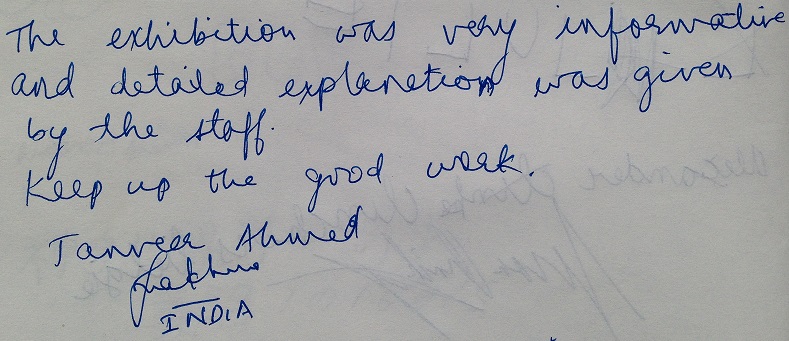 The exhibition was very informative
and detailed explanetion was given
by the staff.
Keep up the good work.
Tanveer Ahmed
INDIA